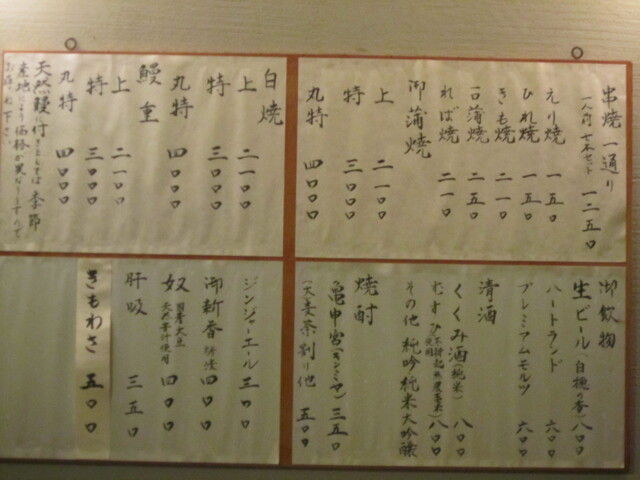 串焼一通り 一二五〇
一人前 七本セット
えり焼 一五〇
ひれ焼 一五〇
きも焼 二一〇
口蒲焼 二五〇
れば焼 二一〇
御蒲焼
上 二一〇〇
特 三〇〇〇
丸特 四〇〇〇
白焼
上 二一〇〇
特 三〇〇〇
丸特 四〇〇〇
鰻重
上 二一〇〇
特 三〇〇〇
丸特 四〇〇〇
天然鰻に付きましては 季節
産地により価格が異なりますので
御飲物
生ビール(白穂の香) 八〇〇
ハートランド 六〇〇
プレミアムモルツ 六〇〇
清酒
くくみ酒(純米) 八〇〇
むすひ 八〇〇
その他 純吟 純米大吟醸
焼酎
亀甲宮(キンミヤ) 三五〇
五〇〇
ジンジャーエール 三〇〇
御新香 四〇〇
奴 国産大豆 天然苦汁使用 四〇〇
肝吸 三五〇
きもわさ 五〇〇